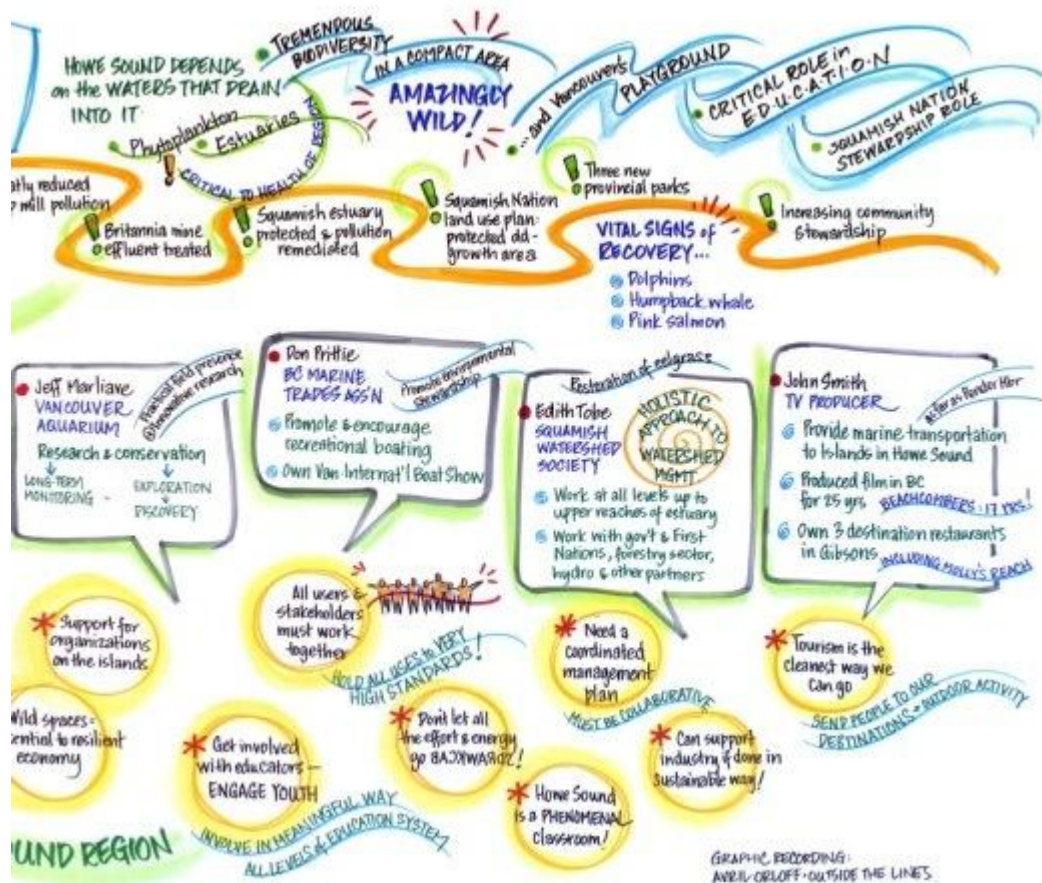 HOWE SOUND DEPENDS
on the WATERS THAT DRAIN
INTO IT.
Phytoplankton
Estuaries
CRITICAL TO HEALTH of REGION
TREMENDOUS
BIODIVERSITY
IN A COMPACT AREA
AMAZINGLY
WILD!
... and VANCOUVER'S
PLAYGROUND
CRITICAL ROLE in
E·D·U·C·A·T·I·O·N
SQUAMISH NATION
STEWARDSHIP ROLE
reduced
mill pollution
! Britannia mine
effluent treated
! Squamish estuary
protected & pollution
remediated
! Squamish Nation
land use plan:
protected old-
growth area
! Three new
provincial parks
VITAL SIGNS of
RECOVERY...
Dolphins
Humpback whale
Pink salmon
! Increasing community
Stewardship
Jeff Marliave
VANCOUVER
AQUARIUM
Practical field presence
innovative research
Research & conservation
LONG-TERM
MONITORING
EXPLORATION
DISCOVERY
Don Prittie
BC MARINE
TRADES ASS'N
Promote environmental
Stewardship
Promote & encourage
recreational boating
Own Van. Internat'l Boat Show
Restoration of eelgrass
Edith Tobe
SQUAMISH
WATERSHED
SOCIETY
HOLISTIC
APPROACH TO
WATERSHED
MGMT
Work at all levels up to
upper reaches of estuary
Work with gov't & First
Nations, forestry sector,
hydro & other partners
John Smith
TV PRODUCER
as far as Pender Hbr
Provide marine transportation
to Islands in Howe Sound
Produced film in BC
for 25 yrs
BEACHCOMBERS: 17 YRS!
Own 3 destination restaurants
in Gibsons
INCLUDING MOLLY'S REACH
* Support for
organizations
on the islands
All users &
stakeholders
must work
together
HOLD ALL USES to VERY
HIGH STANDARDS!
* Need a
coordinated
management
plan
MUST BE COLLABORATIVE
* Tourism is the
cleanest way we
can go
SEND PEOPLE TO OUR
DESTINATIONS + OUTDOOR ACTIVITY
Wild spaces =
to resilient
economy
* Get involved
with educators —
ENGAGE YOUTH
INVOLVE IN MEANINGFUL WAY
ALL LEVELS of EDUCATION SYSTEM
* Don't let all
the effort & energy
go BACKWARDS!
* Howe Sound
is a PHENOMENAL
classroom!
* Can support
industry if done in
sustainable way!
REGION
GRAPHIC RECORDING:
AVRIL ORLOFF · OUTSIDE THE LINES